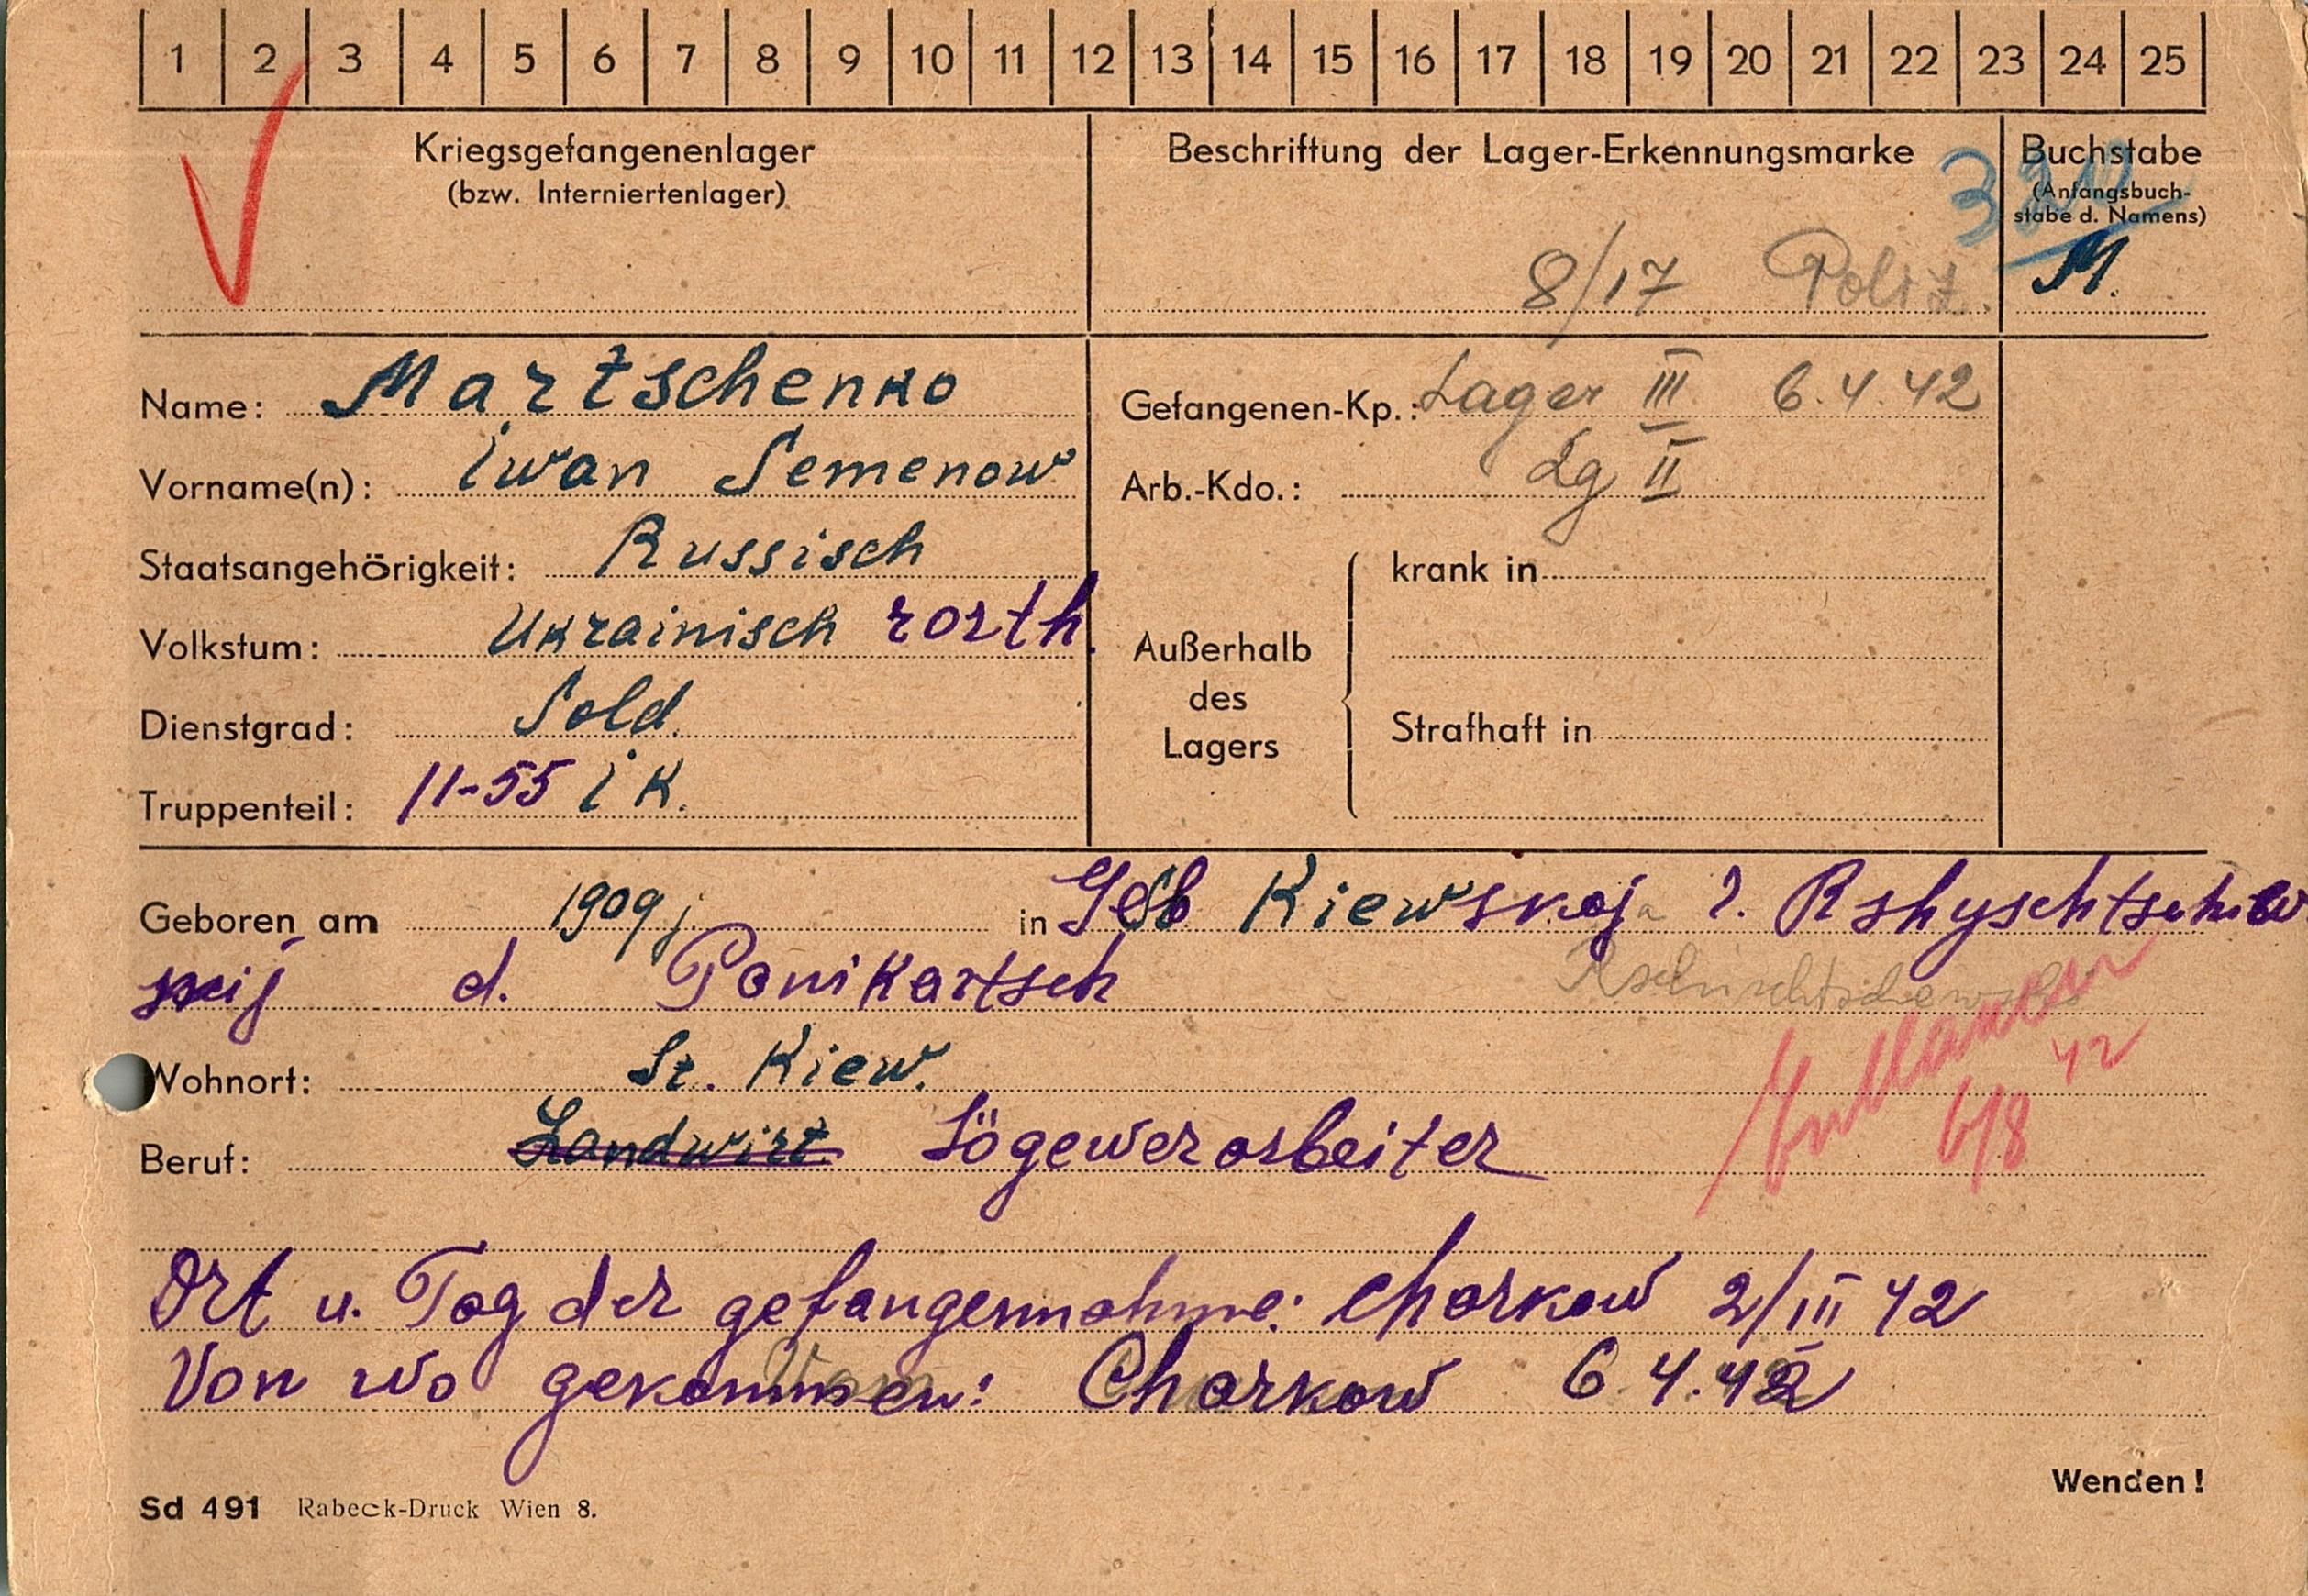 1 2 3 4 5 6 7 8 9 10 11 12 13 14 15 16 17 18 19 20 21 22 23 24 25
Kriegsgefangenenlager
(bzw. Interniertenlager)
Beschriftung der Lager-Erkennungsmarke
8/17 Polit.
Buchstabe
(Anfangsbuch-
stabe d. Namens)
M.
Name: Martschenko
Vorname(n): iwan Semenow
Staatsangehörigkeit: Russisch
Volkstum: Ukrainisch rorth.
Dienstgrad: Sold.
Truppenteil: 11-55 i K.
Gefangenen-Kp.: Lager III 6.4.42
Arb.-Kdo.: Lg II
Außerhalb
des
Lagers
krank in
Strafhaft in
Geboren am 1909 j. in Geb Kiewskoj r. Rshyschtschew
skij d. Ponikartsch
Wohnort: St. Kiew.
Beruf: Landwirt Sögewerarbeiter
Entlassen 6/8 42
Ort u. Tag der gefangennahme: Charkow 2/III 42
Von wo gekommen: Charkow 6.4.42
Wenden!
Sd 491 Rabeck-Druck Wien 8.